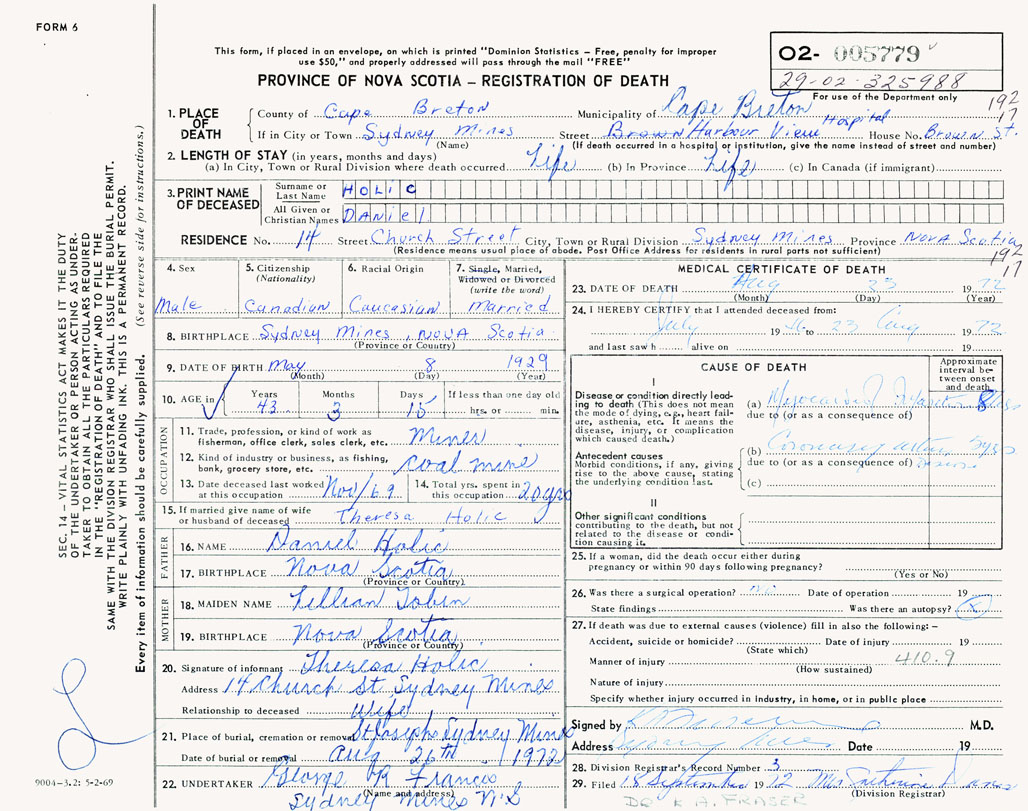 FORM 6
This form, if placed in an envelope, on which is printed "Dominion Statistics – Free, penalty for improper
use $50," and properly addressed will pass through the mail "FREE"
PROVINCE OF NOVA SCOTIA – REGISTRATION OF DEATH
02- 005779
29-02-325988
For use of the Department only
192
17
1. PLACE OF DEATH County of Cape Breton Municipality of Cape Breton
If in City or Town Sydney Mines Street Brown Harbour View Hospital House No. Brown St.
(Name) (If death occurred in a hospital or institution, give the name instead of street and number)
2. LENGTH OF STAY (in years, months and days)
(a) In City, Town or Rural Division where death occurred Life (b) In Province Life (c) In Canada (if immigrant)
3. PRINT NAME OF DECEASED
Surname or Last Name HOLIC
All Given or Christian Names DANiel
RESIDENCE No. 14 Street Church Street City, Town or Rural Division Sydney Mines Province Nova Scotia
(Residence means usual place of abode. Post Office Address for residents in rural parts not sufficient)
192
17
4. Sex
Male
5. Citizenship
(Nationality)
Canadian
6. Racial Origin
Caucasian
7. Single, Married,
Widowed or Divorced
(write the word)
Married
8. BIRTHPLACE Sydney Mines, Nova Scotia
(Province or Country)
9. DATE OF BIRTH May 8 1929
(Month) (Day) (Year)
10. AGE in Years Months Days If less than one day old
43 3 15 hrs. or min.
OCCUPATION
11. Trade, profession, or kind of work as
fisherman, office clerk, sales clerk, etc. Miner
12. Kind of industry or business, as fishing,
bank, grocery store, etc. Coal mine
13. Date deceased last worked
at this occupation Nov/69
14. Total yrs. spent in
this occupation 20 yrs
15. If married give name of wife
or husband of deceased Theresa Holic
FATHER
16. NAME Daniel Holic
17. BIRTHPLACE Nova Scotia
(Province or Country)
MOTHER
18. MAIDEN NAME Lillian Tobin
19. BIRTHPLACE Nova Scotia
(Province or Country)
20. Signature of informant Theresa Holic
Address 14 Church St Sydney Mines
Relationship to deceased Wife
21. Place of burial, cremation or removal St Josephs Sydney Mines
Date of burial or removal Aug 26th 1972
22. UNDERTAKER George R Francis
(Name and address)
Sydney Mines N.S
MEDICAL CERTIFICATE OF DEATH
23. DATE OF DEATH Aug 23 1972
(Month) (Day) (Year)
24. I HEREBY CERTIFY that I attended deceased from:
July 19 to 23 Aug 1972
and last saw h alive on 19
CAUSE OF DEATH
Approximate
interval be-
tween onset
and death
I
Disease or condition directly lead-
ing to death (This does not mean
the mode of dying, e.g., heart fail-
ure, asthenia, etc. It means the
disease, injury, or complication
which caused death.)
(a) Myocardial
due to (or as a consequence of)
Antecedent causes
Morbid conditions, if any, giving
rise to the above cause, stating
the underlying condition last.
(b) Coronary
due to (or as a consequence of)
(c)
II
Other significant conditions
contributing to the death, but not
related to the disease or condi-
tion causing it.
25. If a woman, did the death occur either during
pregnancy or within 90 days following pregnancy?
(Yes or No)
26. Was there a surgical operation? no Date of operation 19
State findings Was there an autopsy?
27. If death was due to external causes (violence) fill in also the following: –
Accident, suicide or homicide? Date of injury 19
(State which)
Manner of injury 410.9
(How sustained)
Nature of injury
Specify whether injury occurred in industry, in home, or in public place
Signed by M.D.
Address Sydney Mines Date 19
28. Division Registrar's Record Number 3
29. Filed 18 September 1972 Mrs
(Division Registrar)
DR K A. FRASER
SEC. 14 – VITAL STATISTICS ACT MAKES IT THE DUTY
OF THE UNDERTAKER OR PERSON ACTING AS UNDER-
TAKER TO OBTAIN ALL THE PARTICULARS REQUIRED
IN THE "REGISTRATION OF DEATH" AND FILE THE
SAME WITH THE DIVISION REGISTRAR WHO SHALL ISSUE THE BURIAL PERMIT.
WRITE PLAINLY WITH UNFADING INK. THIS IS A PERMANENT RECORD.
Every item of information should be carefully supplied. (See reverse side for instructions.)
9004-3.2: 5-2-69